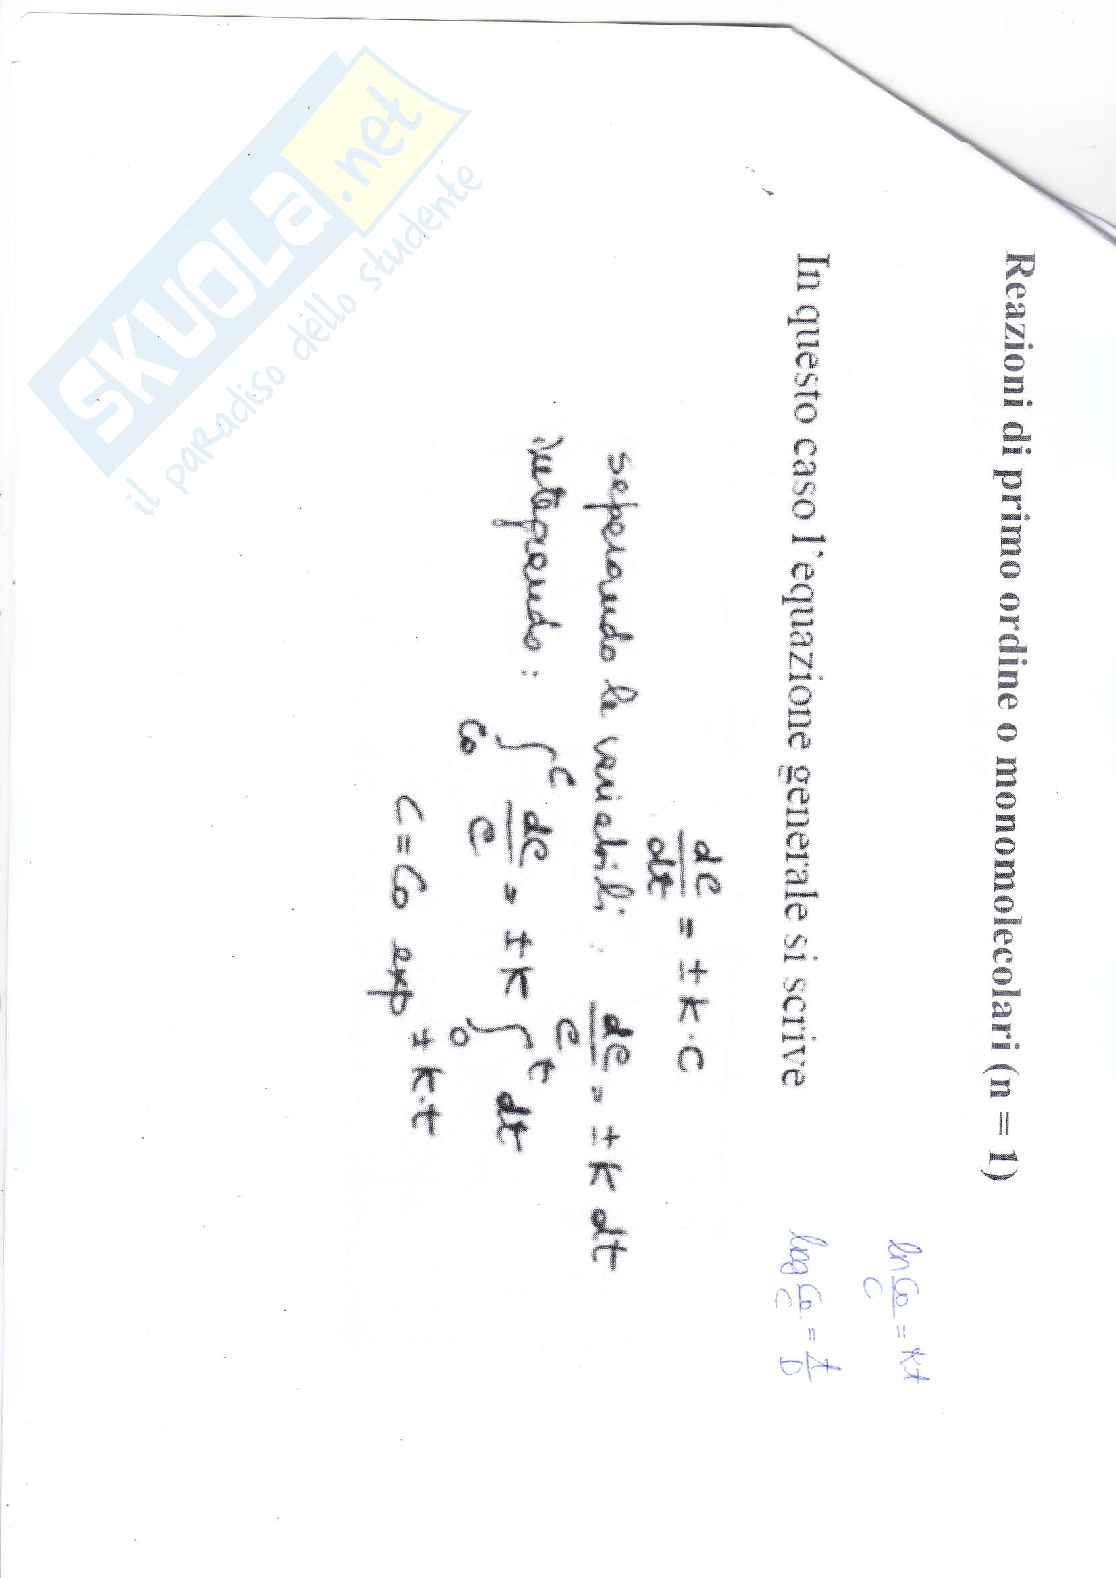 Reazioni di primo ordine o monomolecolari (n = 1)
ln C0/C = kt
log C0/C = t/D
In questo caso l'equazione generale si scrive
dC/dt = ± k · C
separando le variabili: dC/C = ± k dt
integrando: ∫_{C0}^{C} dC/C = ± k ∫_{0}^{t} dt
C = C0 exp ± k·t
SKUOLA.net
il paradiso dello studente